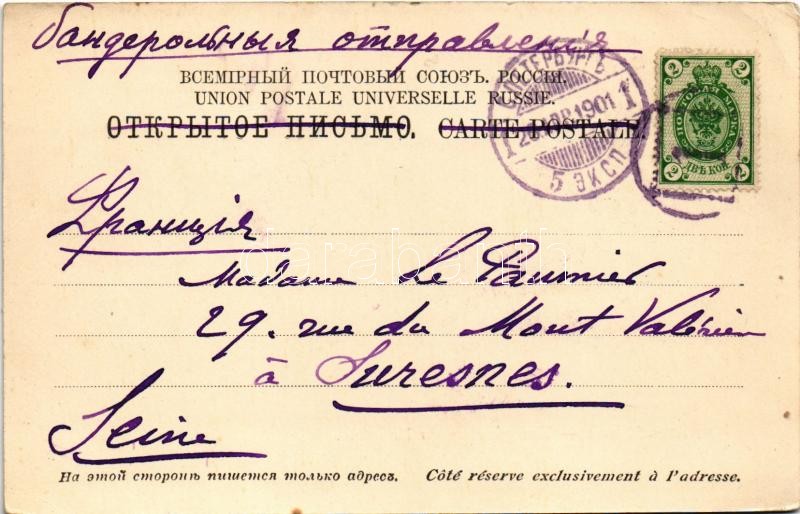 бандерольныя отправленія
ВСЕМІРНЫЙ ПОЧТОВЫЙ СОЮЗЪ. РОССІЯ.
UNION POSTALE UNIVERSELLE RUSSIE.
ОТКРЫТОЕ ПИСЬМО. CARTE POSTALE.
С.ПЕТЕРБУРГЪ
1901
1 1
5 ЭКСП
2 2
ПОЧТОВАЯ МАРКА
ДВѢ КОП.
2 2
Франція
Madame Le Paumier
29. rue du Mont Valérien
à Suresnes.
Seine
На этой сторонѣ пишется только адресъ. Côté réserve exclusivement à l'adresse.
darabanth